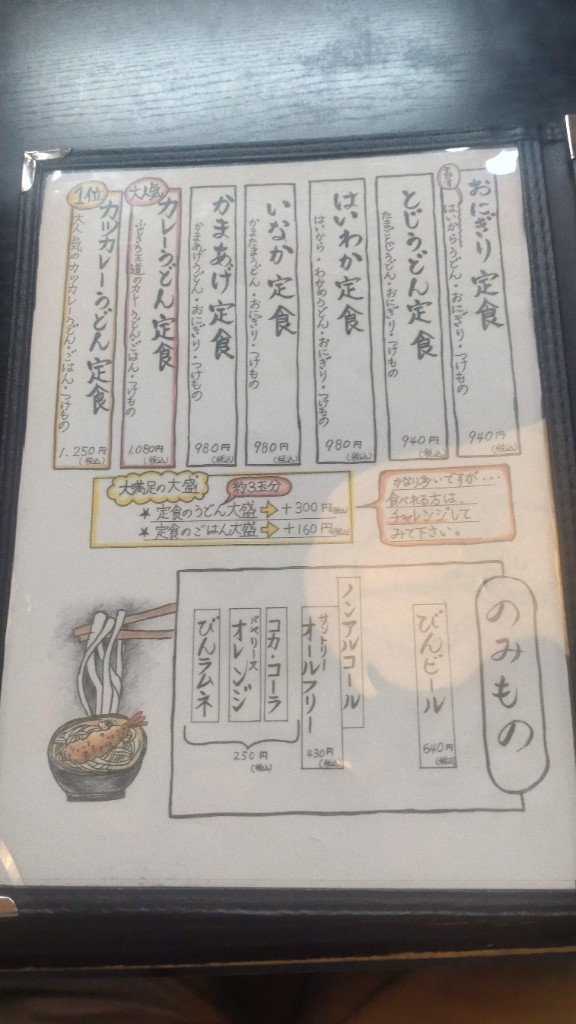 おにぎり定食
はいからうどん・おにぎり・つけもの
940円
(税込)
とじうどん定食
たまごとじうどん・おにぎり・つけもの
940円
(税込)
はいわか定食
はいから・わかめうどん・おにぎり・つけもの
980円
(税込)
いなか定食
かまたまうどん・おにぎり・つけもの
980円
(税込)
かまあげ定食
かまあげうどん・おにぎり・つけもの
980円
(税込)
大人気
カレーうどん定食
王道のカレーうどん・ごはん・つけもの
1.080円
(税込)
1位
カツカレーうどん定食
大人気のカツカレーうどん・ごはん・つけもの
1.250円
(税込)
大満足の大盛
約3玉分
★定食のうどん大盛⇒+300円(税込)
★定食のごはん大盛⇒+160円(税込)
かなり多いですが・・・
食べれる方は、
チャレンジして
みて下さい。
のみもの
びんビール
640円
(税込)
ノンアルコール
サントリー
オールフリー
430円
(税込)
コカ・コーラ
バヤリース
オレンジ
びんラムネ
250円
(税込)